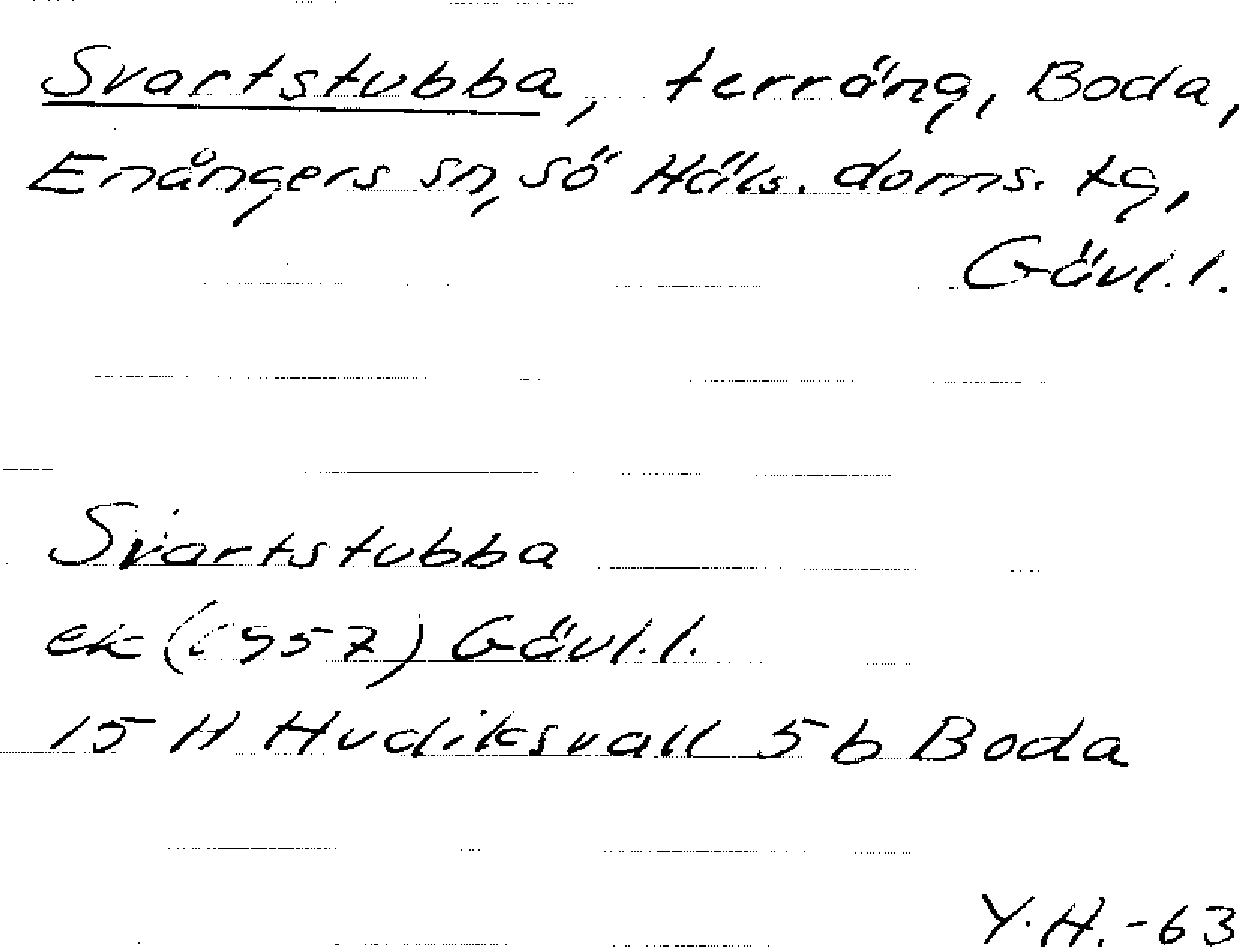 Svartstubba, terräng, Boda,
Enångers sn, sö Häls. doms. tg,
Gävl.l.
Svartstubba
ek (1957) Gävl.l.
15 H Hudiksvall 5 b Boda
Y.H.-63